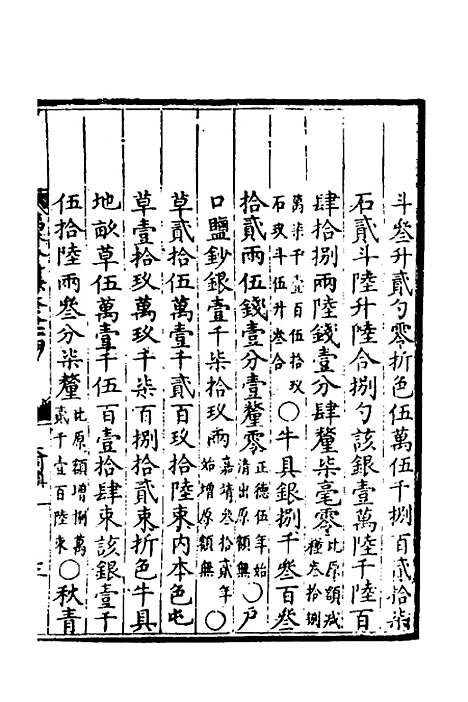 斗叄升貳勺零折色伍萬伍千捌百貳拾柒
石貳斗陸升陸合捌勺該銀壹萬陸千陸百
肆拾捌兩陸錢壹分肆釐柒毫零比原額減種叄拾捌
萬柒千壹百伍拾玖石玖斗伍升叄合○牛具銀捌千叄百叄
拾貳兩伍錢壹分壹釐零正德伍年始清出原額無○戶
口鹽鈔銀壹千柒拾玖兩嘉靖叄拾貳年始增原額無○
草貳拾伍萬壹千貳百玖拾陸束內本色屯
草壹拾玖萬玖千柒百捌拾貳束折色牛具
地畝草伍萬壹千伍百壹拾肆束該銀壹千
伍拾陸兩叄分柒釐比原額增捌萬貳千壹百陸束○秋青